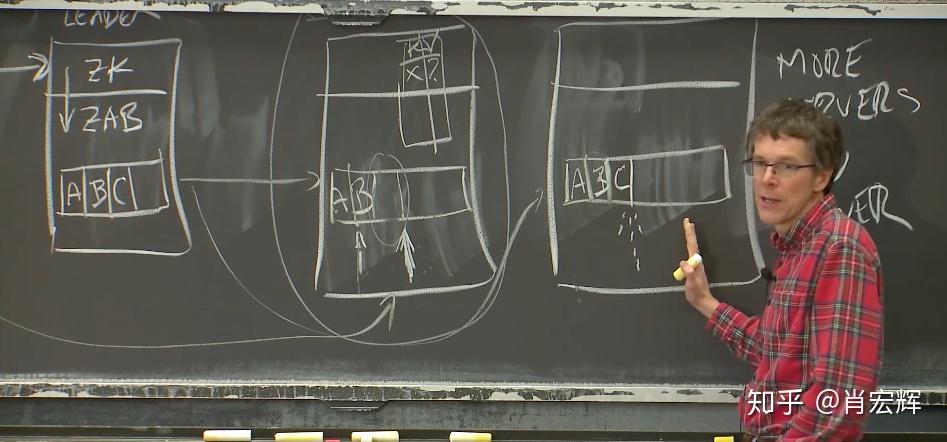 LEADER
ZK
ZAB
A B C
K V
X
A B
A B C
MORE
知乎 @肖宏辉